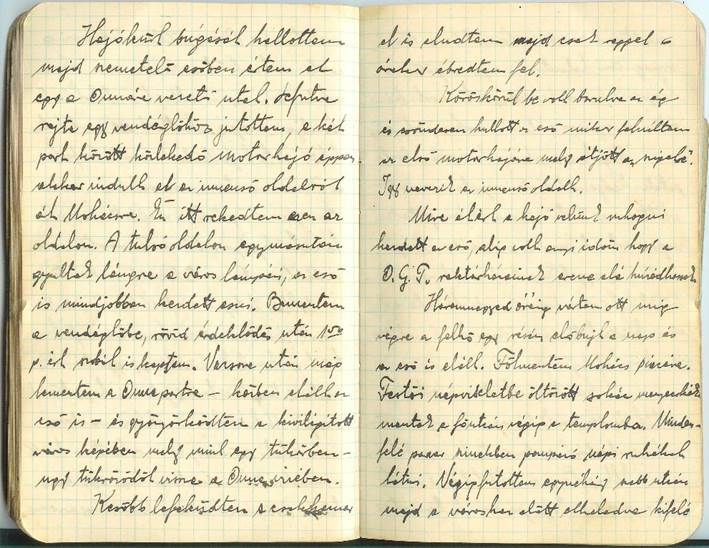 Hajókürt búgását hallottam
majd nemetelő esőben értem el
egy a Dunára vezető utat. Lefutva
rajta egy vendéglőhöz jutottam, a két
part között közlekedő motorhajó éppen
akkor indult el az innenső oldalról
át Mohácsra. Én itt rekedtem ezen az
oldalon. A túlsó oldalon egymásután
gyultak lángra a város lámpái, az eső
is mindjobban kezdett esni. Bementem
a vendéglőbe, rövid érdeklődés után 1.50
p. ért szobát is kaptam. Vacsora után még
lementem a Duna partra – közben elállt az
eső is – és gyönyörködtem a kivilágított
város képében mely mint egy tükörben –
úgy tükröződött vissza a Duna vizében.
Később lefeküdtem s csakhamar
el is aludtam majd csak reggel 6
órakor ébredtem fel.
Köröskörül be volt borulva az ég
és szomorúan hullott az eső mikor felültem
az első motorhajóra mely átjött az
Így nevezik az innenső oldalt.
Mire átért a hajó velünk zuhogni
kezdett az eső, alig volt annyi időm hogy a
D. G. T. raktárházainak eresze alá húzódhassak
Háromnegyed óráig vártam ott míg
végre a felhő egy részén előbújt a nap és
az eső is elállt. Fölmentem Mohács piacára.
Festői népviseletbe öltözött sokác menyecskék
mentek a főutcán végig a templomba. Minden-
felé pazar színekben pompázó népi ruhákat
látni. Végigfutottam egynéhány utcán
majd a városháza előtt elhaladva kifelé